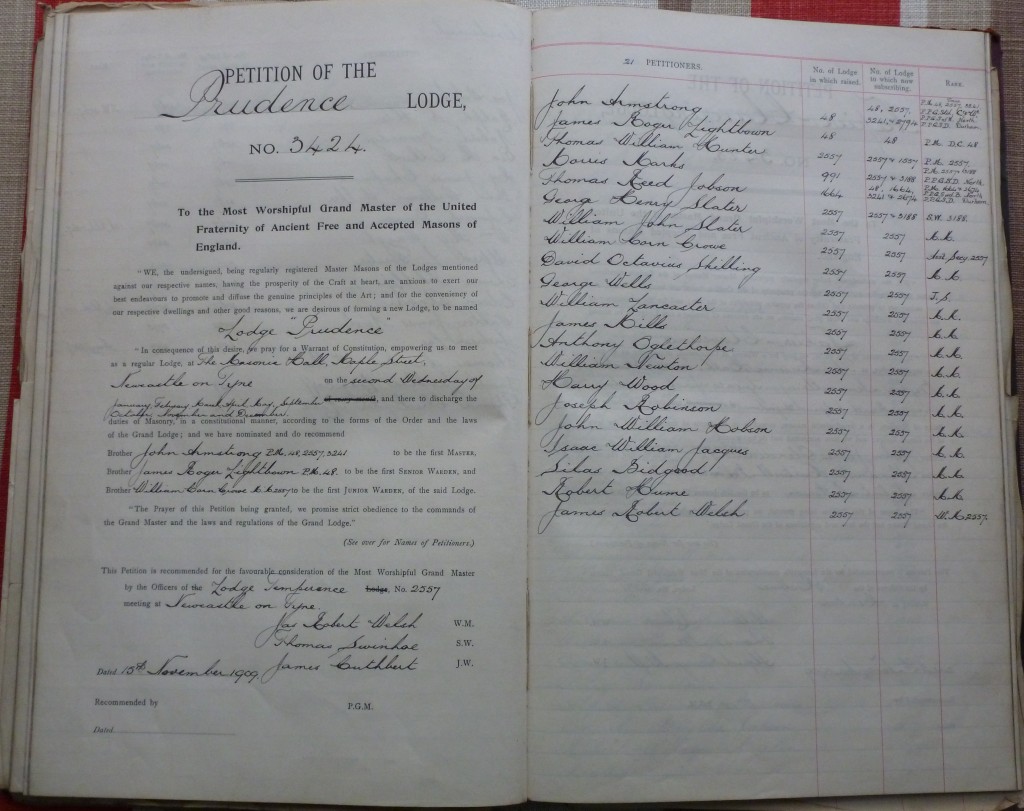 PETITION OF THE
Prudence LODGE,
NO. 3424.
To the Most Worshipful Grand Master of the United
Fraternity of Ancient Free and Accepted Masons of
England.
"WE, the undersigned, being regularly registered Master Masons of the Lodges mentioned
against our respective names, having the prosperity of the Craft at heart, are anxious to exert our
best endeavours to promote and diffuse the genuine principles of the Art; and for the conveniency of
our respective dwellings and other good reasons, we are desirous of forming a new Lodge, to be named
Lodge "Prudence"
"In consequence of this desire, we pray for a Warrant of Constitution, empowering us to meet
as a regular Lodge, at The Masonic Hall, Maple Street,
Newcastle on Tyne on the second Wednesday of
January, February, March, April, May, September
October, November and December. and there to discharge the
duties of Masonry, in a constitutional manner, according to the forms of the Order and the laws
of the Grand Lodge; and we have nominated and do recommend
Brother John Armstrong P.M. 48, 2557, 3241 to be the first MASTER,
Brother James Roger Lightbown P.M. 48. to be the first SENIOR WARDEN, and
Brother William Corn Crowe M.M. 2557 to be the first JUNIOR WARDEN, of the said Lodge.
"The Prayer of this Petition being granted, we promise strict obedience to the commands of
the Grand Master and the laws and regulations of the Grand Lodge."
(See over for Names of Petitioners.)
This Petition is recommended for the favourable consideration of the Most Worshipful Grand Master
by the Officers of the Lodge Temperance Lodge, No. 2557
meeting at Newcastle on Tyne.
Jas Robert Welsh W.M.
Thomas Swinhoe S.W.
James Cuthbert J.W.
Dated 15th November 1909
Recommended by P.G.M.
Dated
21 PETITIONERS. No. of Lodge in which raised. No. of Lodge to which now subscribing. RANK.
John Armstrong 48 48, 2557, 3241
James Roger Lightbown 48
Thomas William Hunter 48 48 P.M. D.C. 48
Morris Marks 2557 2557 & 1557 P.M. 2557.
Thomas Reed Jobson 991 2557 & 3188
George Henry Slater 1664 48, 1664, 3241 & 2674
William John Slater 2557 2557 & 3188 S.W. 3188.
William Corn Crowe 2557 2557 M.M.
David Octavius Shilling 2557 2557 Asst Secy 2557
George Wells 2557 2557 M.M.
William Lancaster 2557 2557 J.S.
James Mills 2557 2557 M.M.
Anthony Oglethorpe 2557 2557 M.M.
William Newton 2557 2557 M.M.
Harry Wood 2557 2557 M.M.
Joseph Robinson 2557 2557 M.M.
John William Hobson 2557 2557 M.M.
Isaac William Jacques 2557 2557 M.M.
Silas Bidgood 2557 2557 M.M.
Robert Hume 2557 2557 M.M.
James Robert Welsh 2557 2557 W.M. 2557.